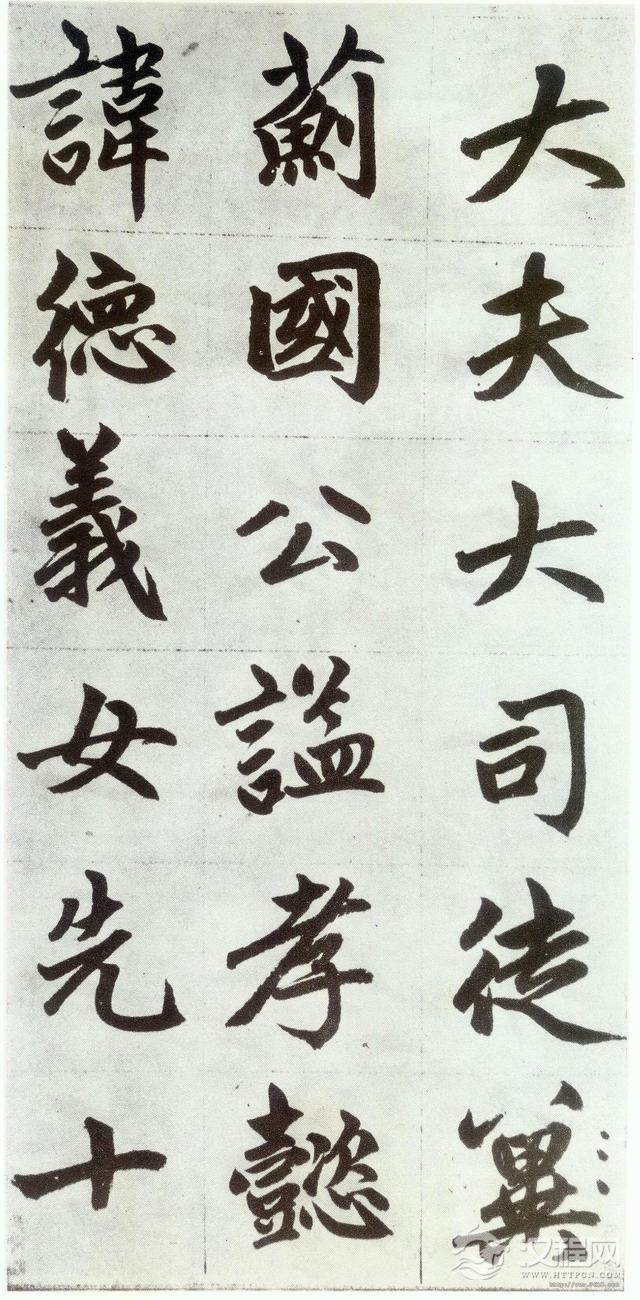 大夫大司徒冀
薊國公謚孝懿
諱德義女先十
汉程网
WWW.HTTPCN.COM